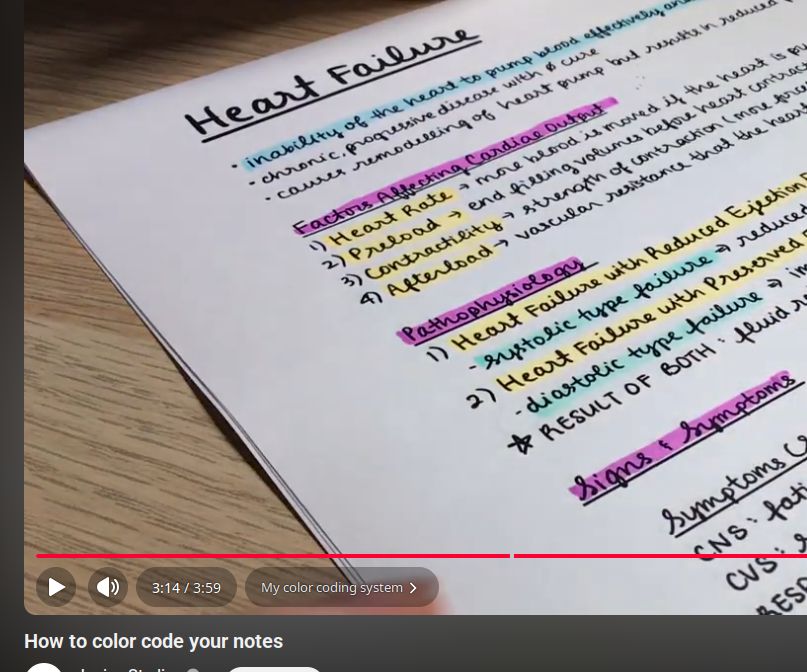 Heart Failure
• inability of the heart to pump blood effectively and
- chronic, progressive disease with ∅ cure
• causes remodeling of heart pump but results in reduced
Factors Affecting Cardiac Output
1) Heart Rate → more blood is moved if the heart is
2) Preload → end filling volumes before heart contract
3) Contractility → strength of contraction (more
4) Afterload → vascular resistance that the heart
Pathophysiology
1) Heart Failure with Reduced Ejection
- systolic type failure ⇒ reduced
2) Heart Failure with Preserved
- diastolic type failure ⇒
☆ RESULT OF BOTH: fluid
Signs & Symptoms
Symptoms
CNS: fati
CVS:
RESP
3:14 / 3:59
My color coding system >
How to color code your notes